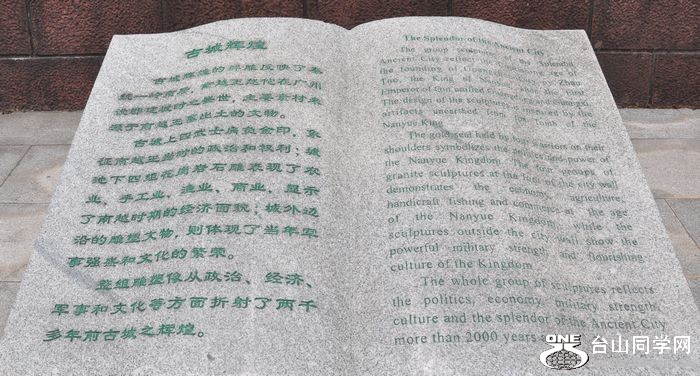 古城辉煌
古城辉煌的群雕反映了秦
统一岭南后，南越王赵佗在广州
城创建城时之盛世，主要素材来
源于南越王墓出土的文物。
古城上四武士肩负金印，象
征南越王当时的政治和权利；城
地下四组花岗岩石雕表现了农
业、手工业、渔业、商业，显示
了南越时期的经济面貌；城外边
沿的雕塑文物，则体现了当年军
事强盛和文化的繁荣。
整组雕塑像从政治、经济、
军事和文化等方面折射了两千
多年前古城之辉煌。
The Splendor of the Ancient City
The group sculptures the Splendid
Ancient City reflect the age
the founding of Guangzhou by Zhao
Tuo, the King of Nanyue while the First
Emperor of Qin unified
The design of the sculptures is inspired by the
artifacts unearthed from the Tomb of the
Nanyue King.
The gold seal held by four warriors on their
shoulders symbolizes the politics and power of
the Nanyue Kingdom. The four groups of
granite sculptures at the foot of the city wall
demonstrates the economy, agriculture,
handicraft, fishing and commerce at the age
of the Nanyue Kingdom, while the
sculptures outside the city wall show the
powerful military strength and flourishing
culture of the Kingdom.
The whole group of sculptures reflects
the politics, economy, military strength,
culture and the splendor of the Ancient City
more than 2000 years
ONE
台山同学网